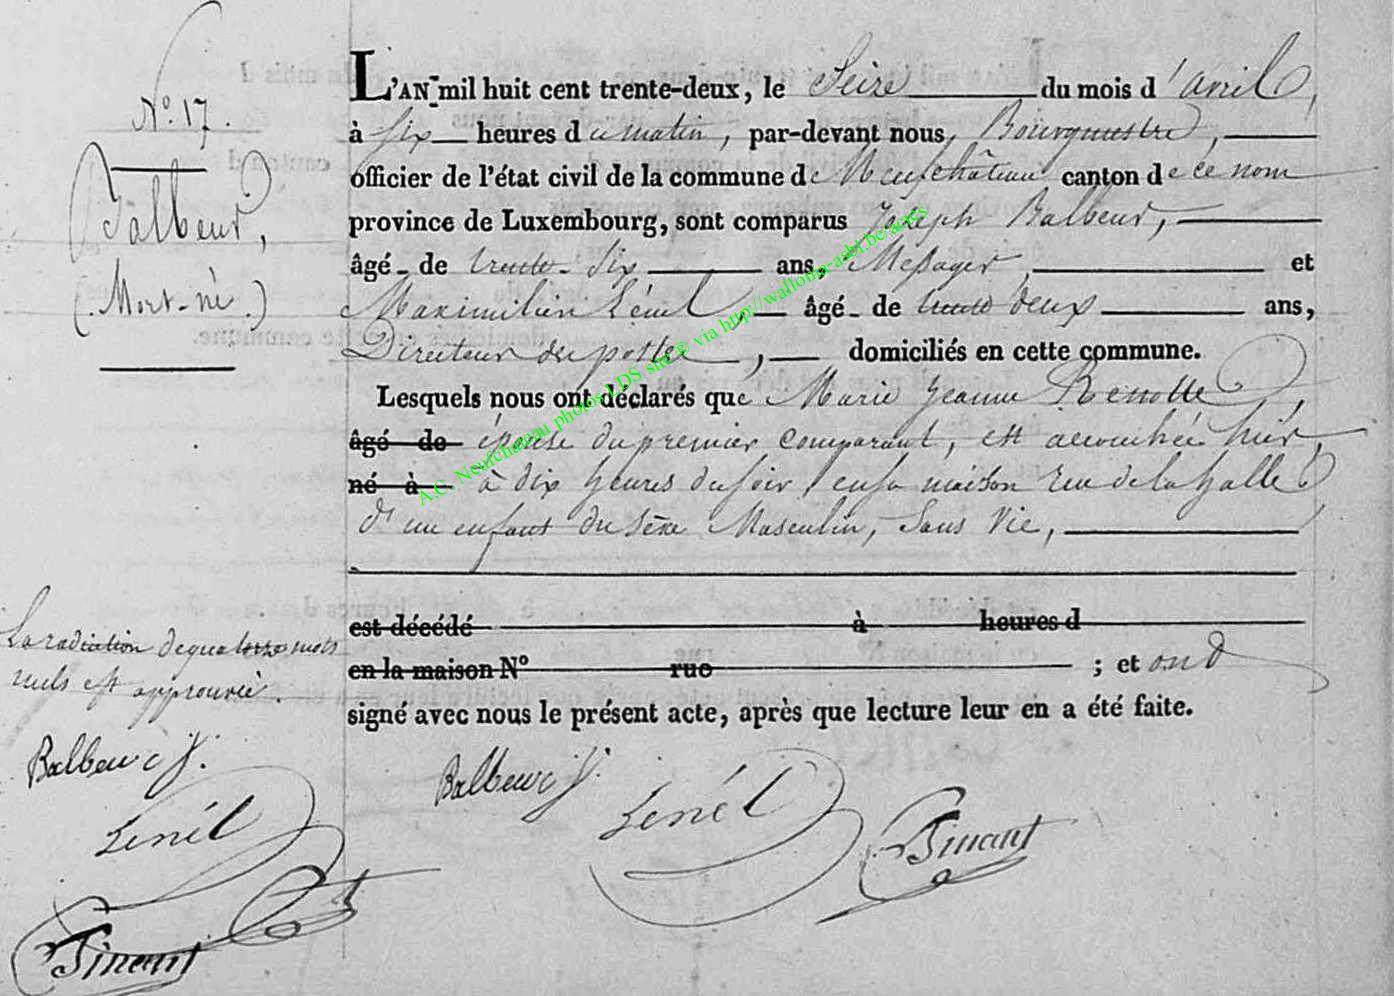 N.° 17.
Balbeur,
(Mort-né.)
L'AN mil huit cent trente-deux, le Seize du mois d'avril,
à six heures du matin, par-devant nous, Bourgmestre,
officier de l'état civil de la commune de Neufchâteau canton de ce nom
province de Luxembourg, sont comparus Joseph Balbeur,
âgé de trente-six ans, Messager, et
Maximilien Lénel, âgé de trente deux ans,
Directeur des postes, domiciliés en cette commune.
Lesquels nous ont déclarés que Marie Jeanne Renotte,
âgé de épouse du premier comparant, est accouchée hier,
né à à dix heures du soir, en la maison rue de la halle
d'un enfant du sexe Masculin, Sans Vie,
est décédé à heures d
en la maison N° rue ; et ont
signé avec nous le présent acte, après que lecture leur en a été faite.
La radiation de quatorze mots
nuls est approuvée.
Balbeur J.
Lenél
Balbeur J.
Lenél
A.C. Neufchateau photos LDS site © via http://wallonia-asbl.be/actes